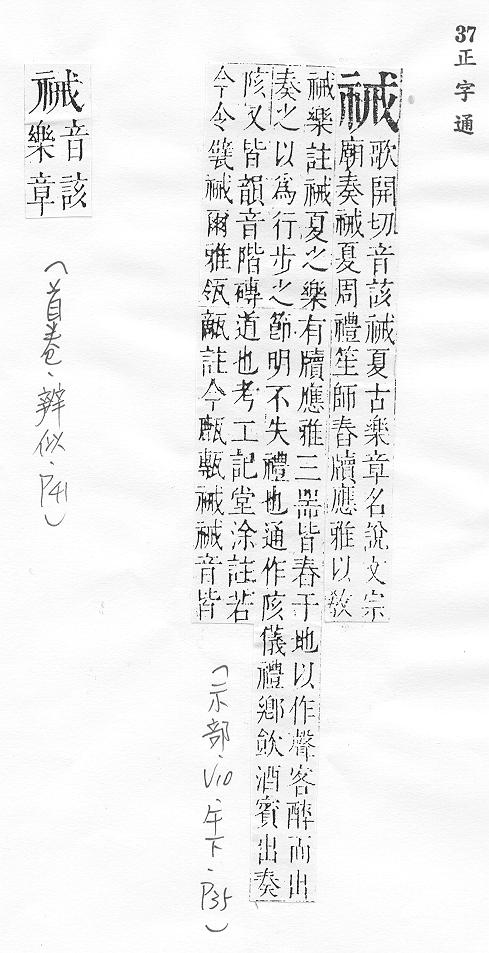 37
正字通
祴
歌開切音該祴夏古樂章名說文宗
廟奏祴夏周禮笙師舂牘應雅以敎
祴樂註祴夏之樂有牘應雅三器皆舂于地以作聲客醉而出
奏之以爲行步之節明不失禮也通作陔儀禮鄉飮酒賓出奏
陔又皆韻音階磚道也考工記堂涂註若
今令甓祴爾雅瓴甋註今祴祴音皆
(示部、V10、午下、P35)
祴
音該
樂章
(首卷、辨似、P41)